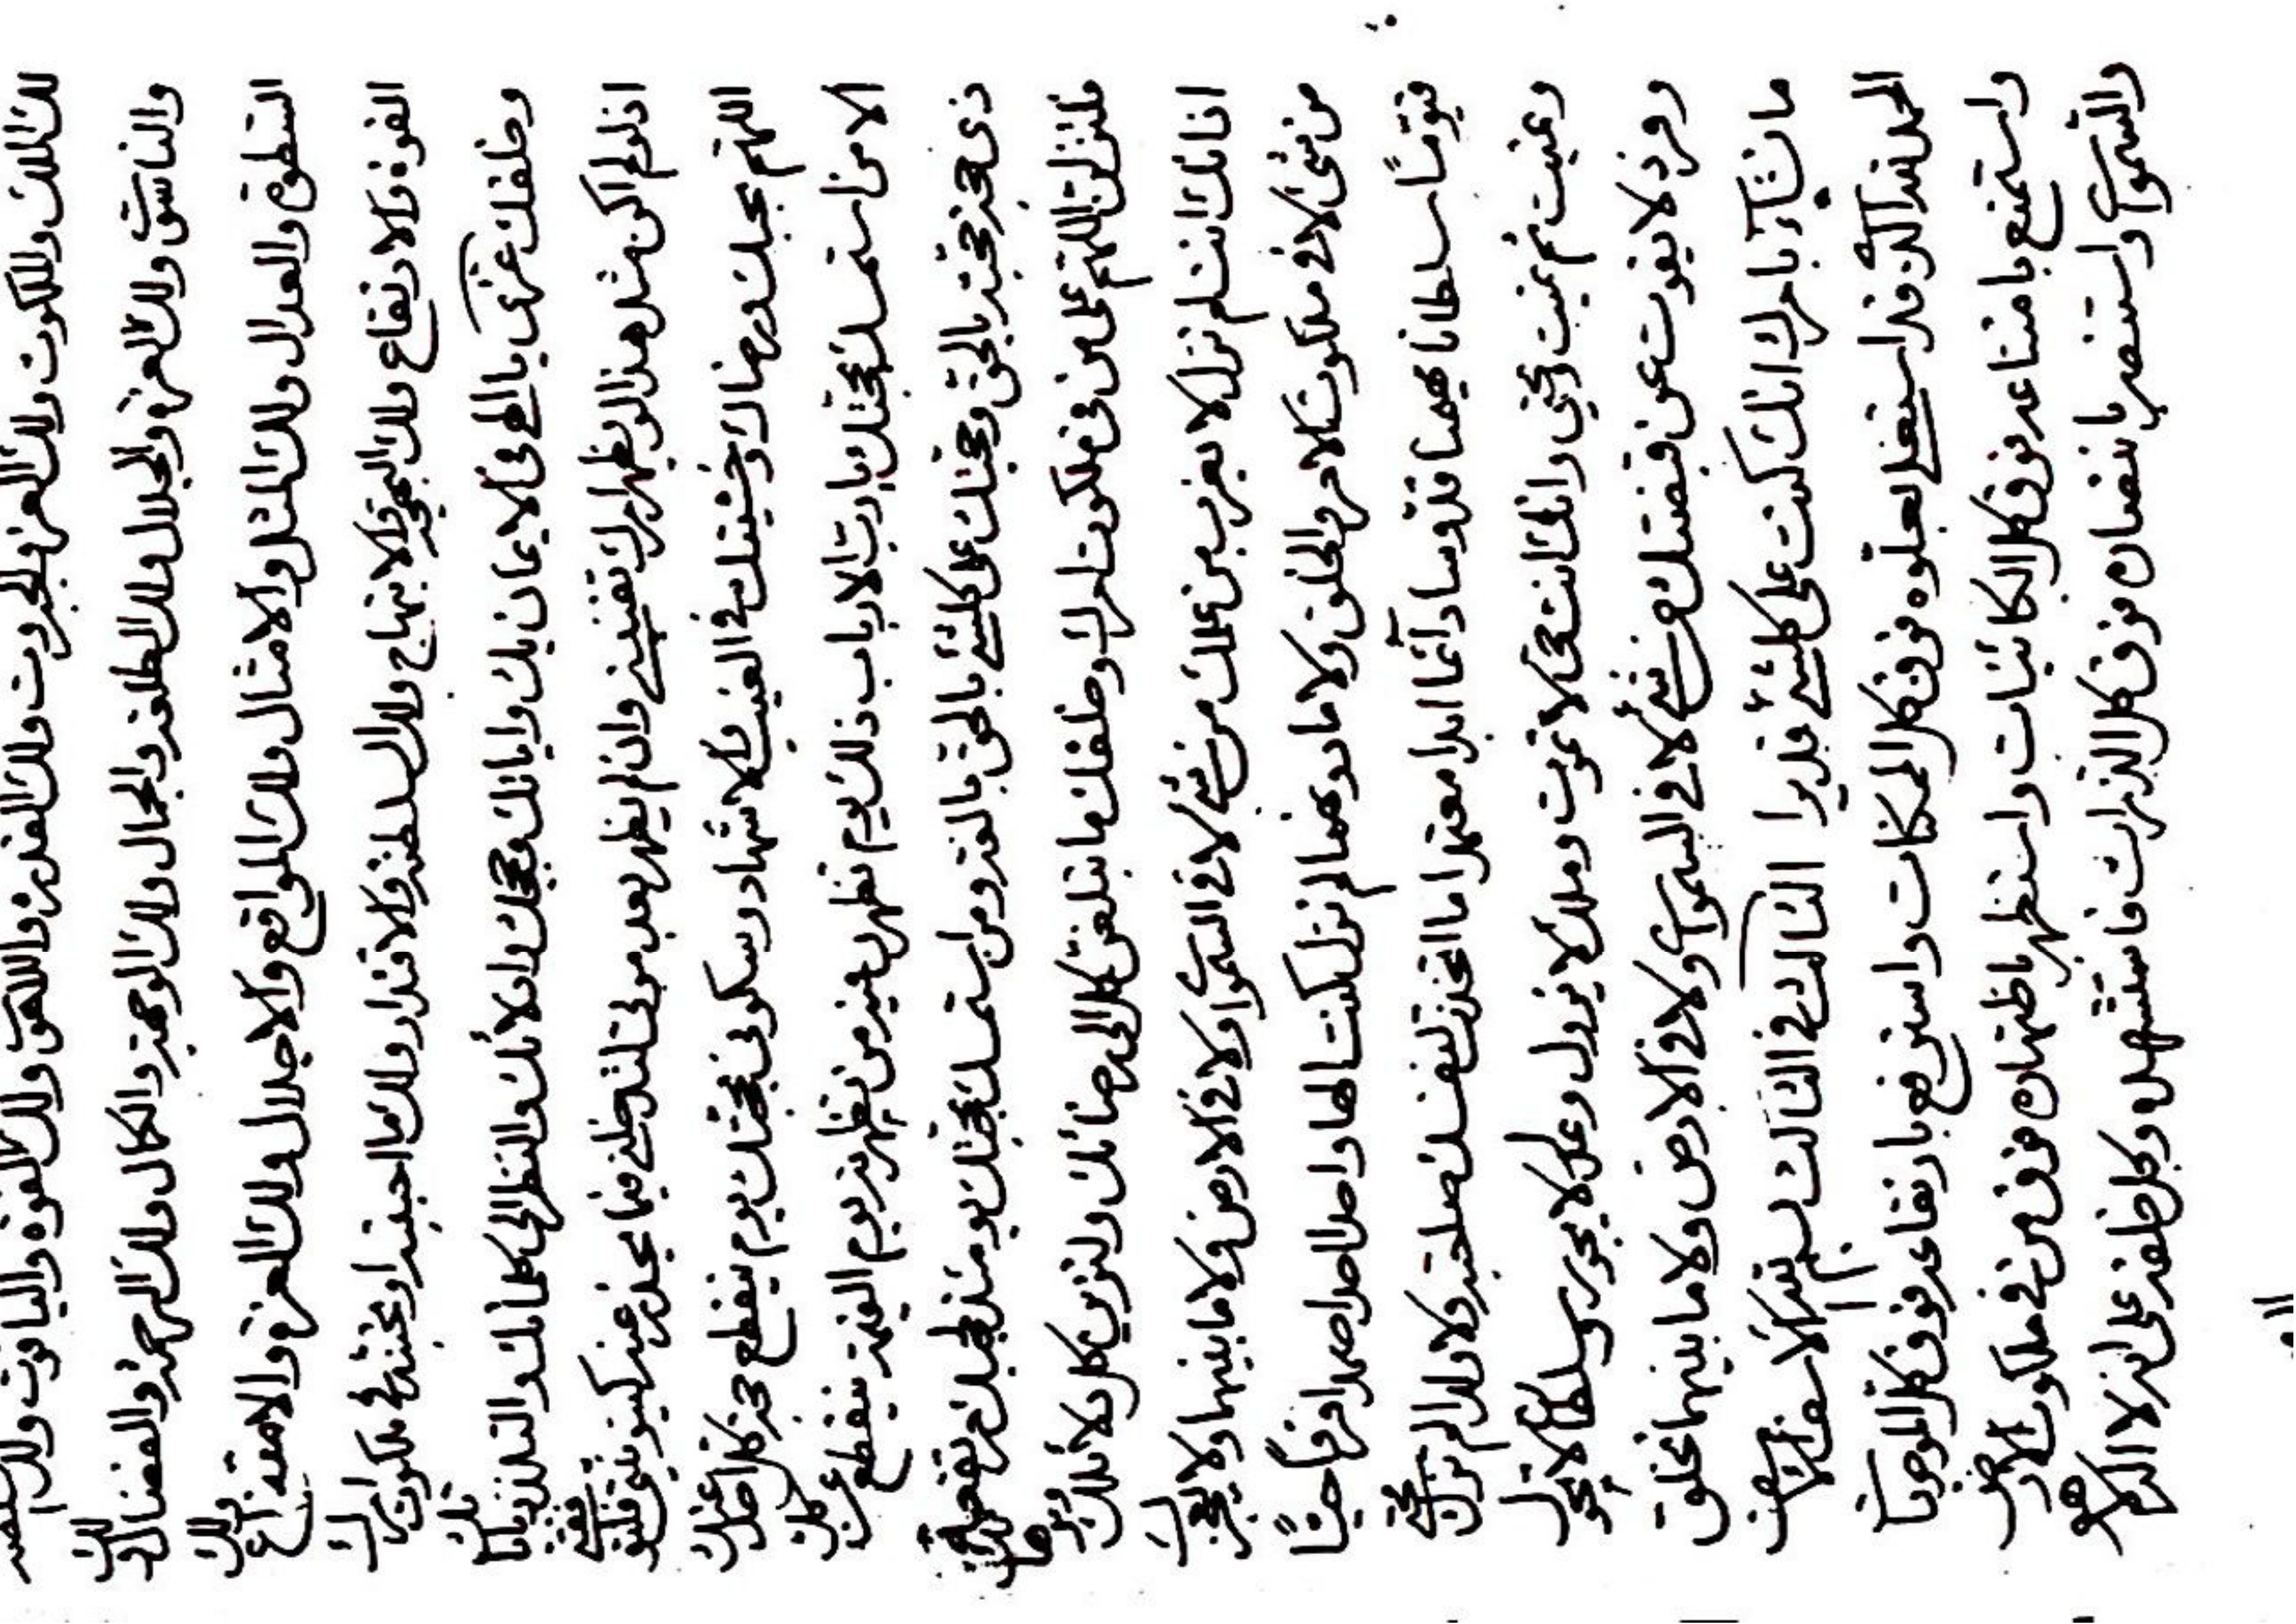 لك الملك والملكوت ولك العز والجبروت ولك القدرة واللاهوت ولك القوة والياقوت ولك
والناسوت ولك العزة والجلال ولك الطلعة والجمال ولك الوجهة والكمال ولك الرحمة والفضال ولك
السطوة والعدال ولك المثل والامثال ولك المواقع والاجلال ولك العزة والامتناع ولك
القوة والارتفاع ولك البهجة والابتهاج ولك السلطنة والاقتدار ولك ما احببته او تحبنه في ملكوت امرك
وخلقك يا الهى في الايمان بك واياتك وحججك وادلائك والنظر الى كلماتك والتلذذ باياتك
اذ لو لم اكن مثل هذا لو يظهر امرك وان لم يظهر بعد موتى لتدخلنى فيما عنه كينونيتى
اللهم بحبك ورضاك وخشيتك في الغيب والاشهاد وسكونى بحجتك يوم ينقطع حجة كل احد عندك
الا من استمسك بحجتك يا رب الارباب ذلك يوم تظهرن فيه من تظهرنه يوم القيمة ينقطع عن كل
ذى حجة حجته بالحق وحجتك على كلشئ بالحق بالغة ومن استمسك بحجتك يومئذ
فلتنزلن اللهم على من في ملكوت امرك وخلقك ما يبلغن كل الى رضائك ولتربين كل بدلائلك
اذ انك انت لم تزل لا يعزب من علمك من شئ لا في السموات ولا في الارض ولا ما بينهما ولا يعجزك
من شئ لا في ملكوت الامر والخلق ولا ما دونهما لم تزل كنت الها واحدا احدا صمدا فردا حيا
قيوما سلطانا مهيمنا قدوسا دائما ابدا معتمدا ما اتخذت لنفسك صاحبة ولا ولدا لم تزل تحيى
وتميت ثم تميت وتحيى وانك انت حى لا تموت وملك لا تزول وعدل لا تجور وسلطان لا تحول
وفرد لا يفوت عن قبضتك من شئ لا في السموات ولا في الارض ولا ما بينهما تخلق
ما تشاء بامرك انك كنت على كلشئ قديرا الثالث في الثالث بسم الله الاسقف الاسقف
الحمد لله الذي قد استعلى بعلوه فوق كل الممكنات واسترفع بارتفاعه فوق كل الموجودات
واستمنع بامتناعه فوق كل الكائنات واستظهر باظتهاره فوق من في ملكوت الارض
والسموات واستنصر بانتصاره فوق كل الذرات فاستشهده وكل خلقه على انه لا اله الا هو